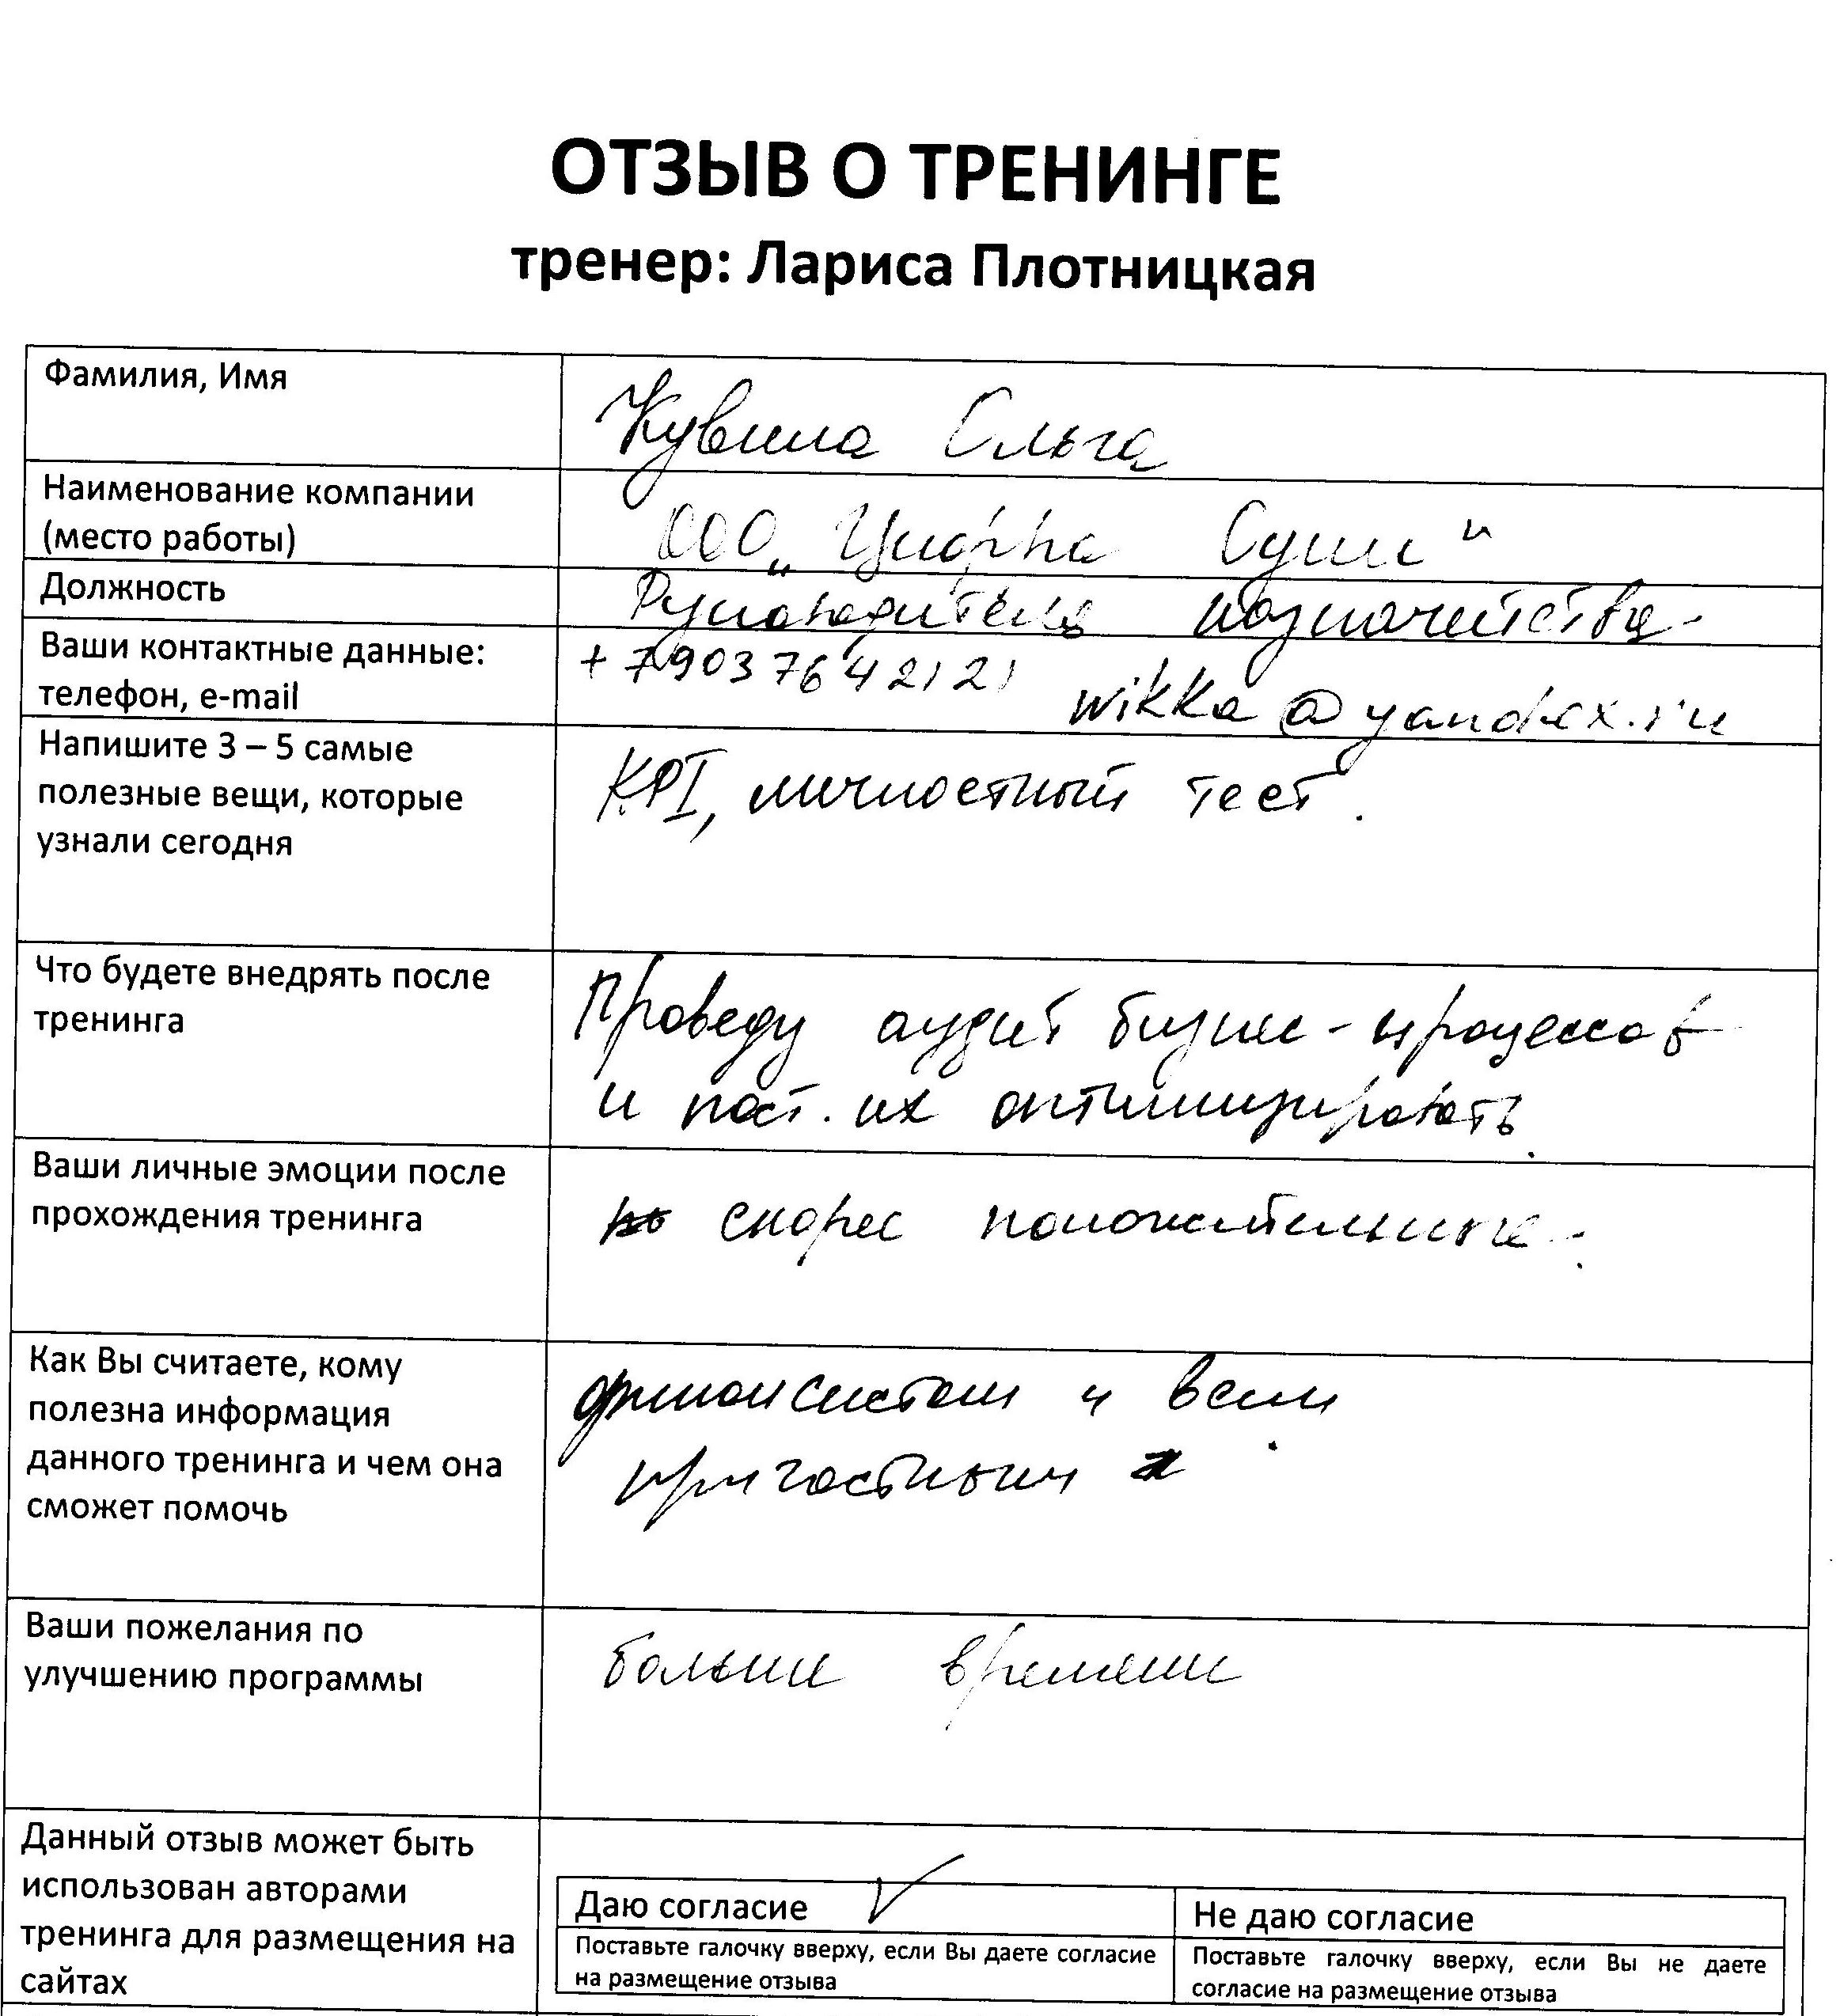 ОТЗЫВ О ТРЕНИНГЕ
тренер: Лариса Плотницкая
Фамилия, Имя
Ольга
Наименование компании
(место работы)
ООО „ Суши "
Должность
Руководитель казначейства
Ваши контактные данные:
телефон, e-mail
+79037642121
wikka@yandex.ru
Напишите 3 – 5 самые
полезные вещи, которые
узнали сегодня
KPI, личностный тест.
Что будете внедрять после
тренинга
Проведу аудит бизнес-процессов
и пост. их оптимизировать.
Ваши личные эмоции после
прохождения тренинга
скорее положительные.
Как Вы считаете, кому
полезна информация
данного тренинга и чем она
сможет помочь
финансистам и всем
причастным
Ваши пожелания по
улучшению программы
больше времени
Данный отзыв может быть
использован авторами
тренинга для размещения на
сайтах
Даю согласие
Поставьте галочку вверху, если Вы даете согласие
на размещение отзыва
Не даю согласие
Поставьте галочку вверху, если Вы не даете
согласие на размещение отзыва